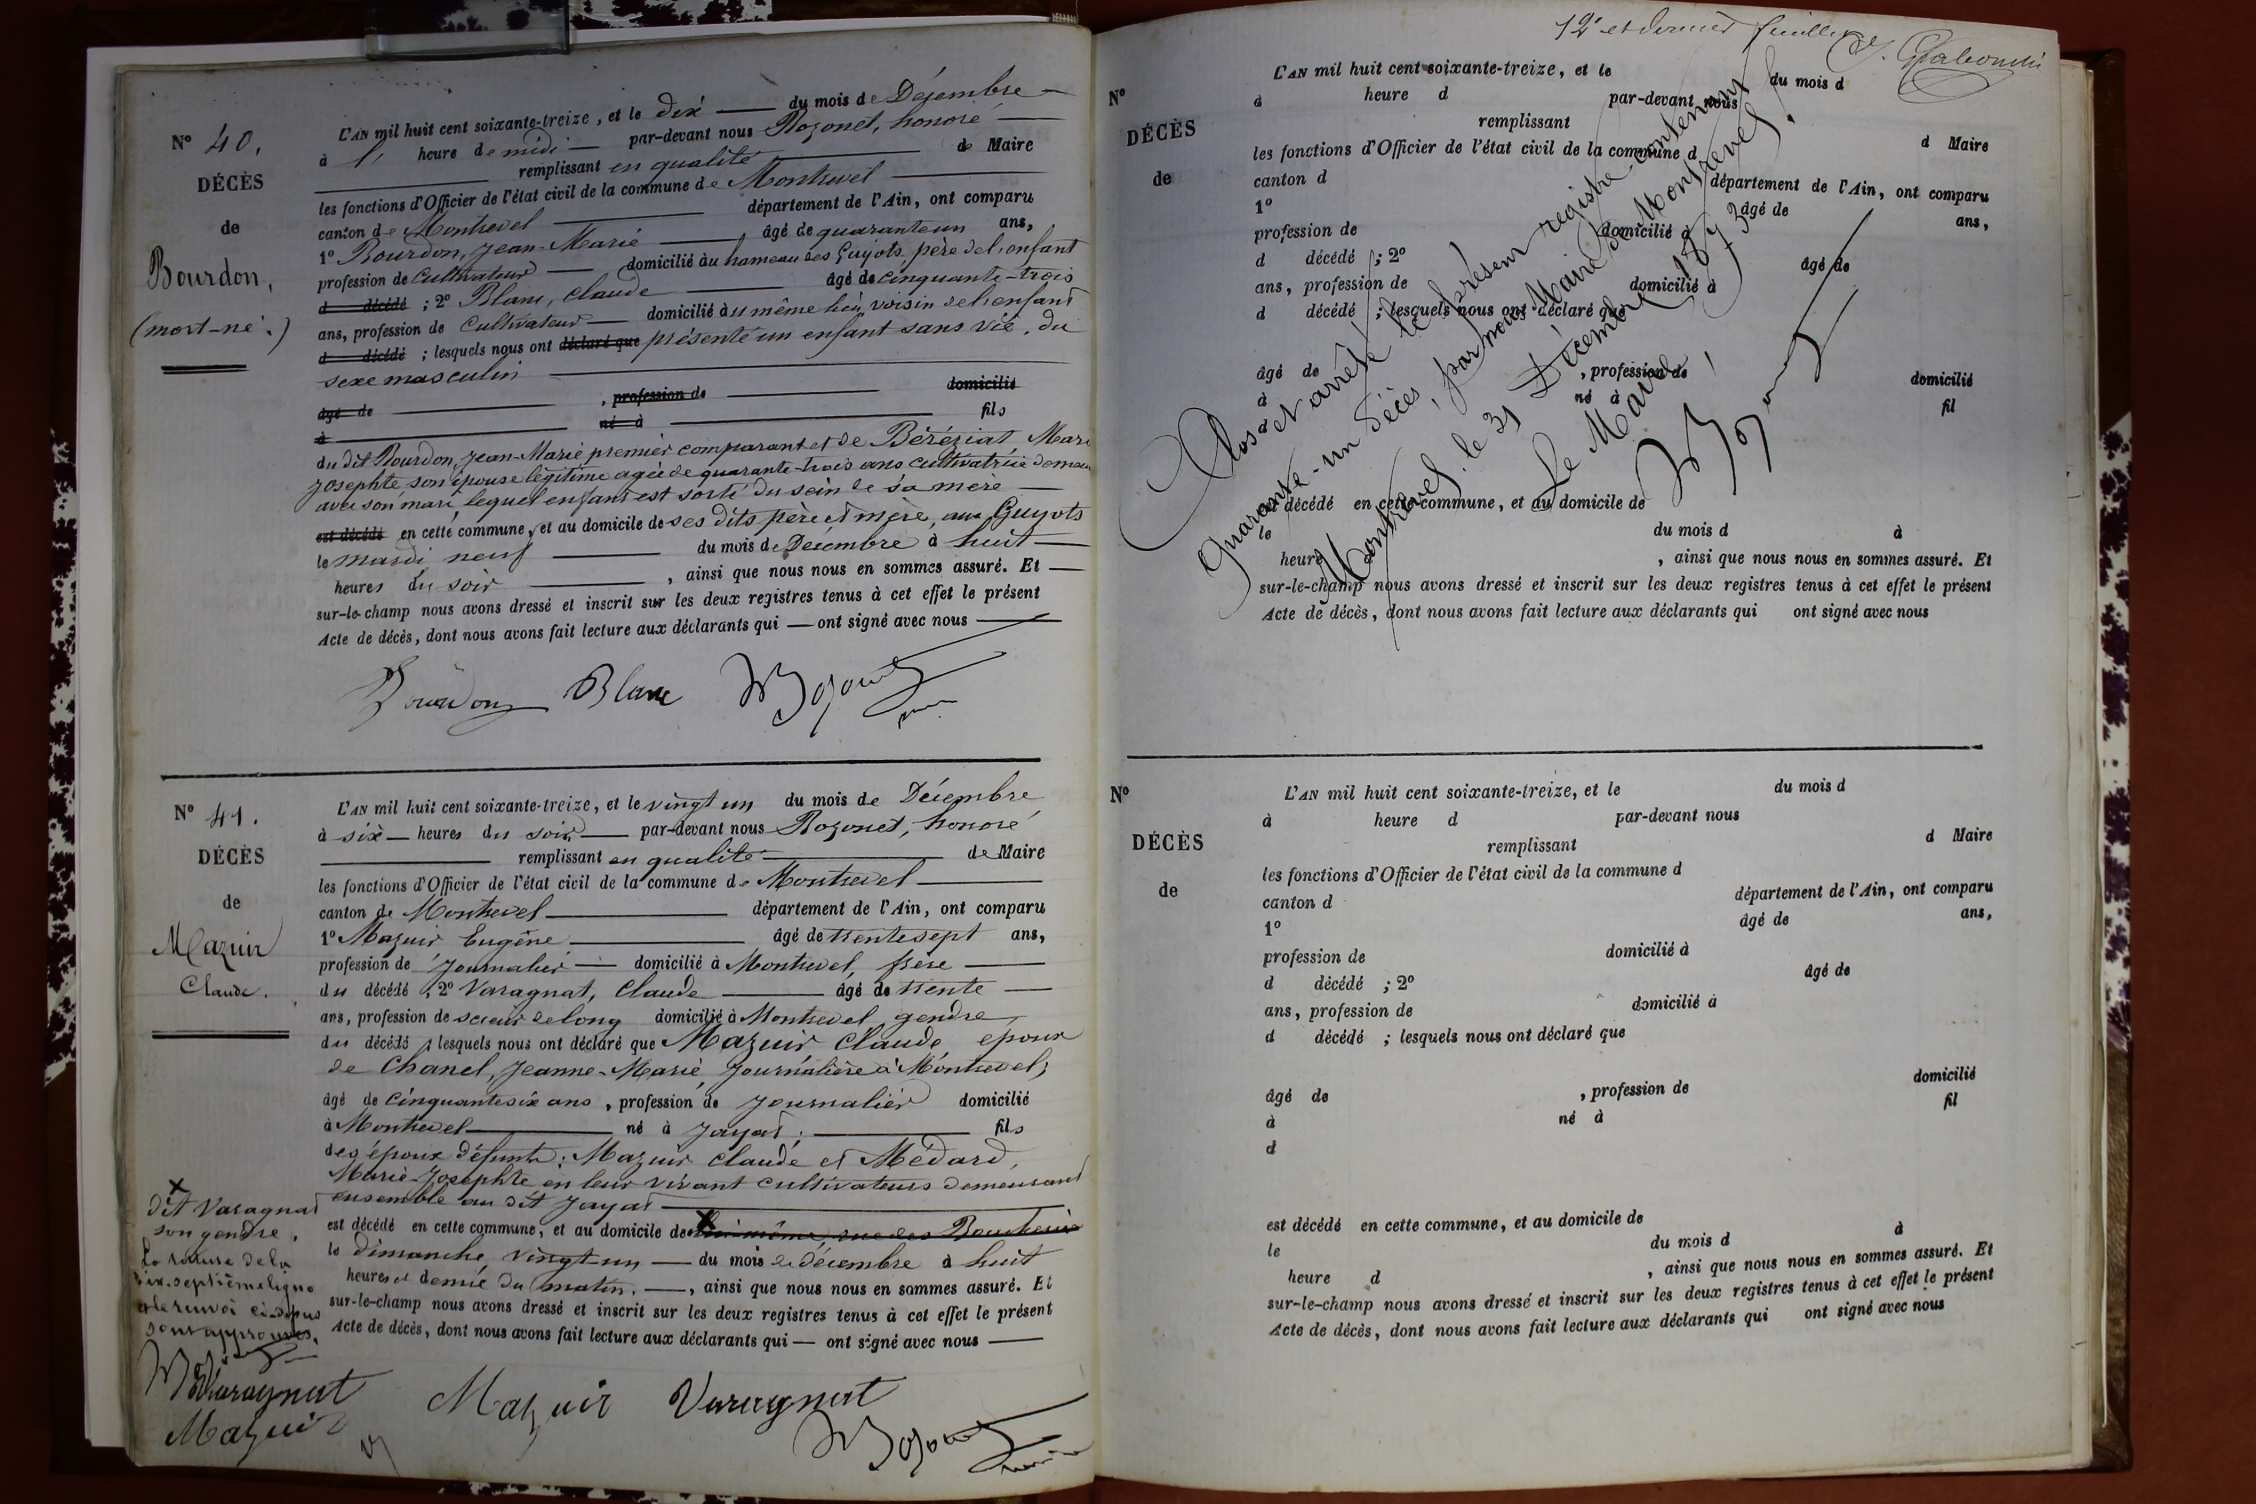 N° 40.
DÉCÈS
de
Bourdon,
(mort-né.)
L'AN mil huit cent soixante-treize, et le dix du mois de Décembre
à l' heure de midi par-devant nous Rozonet, honoré
remplissant en qualité de Maire
les fonctions d'Officier de l'état civil de la commune de Montrevel
canton de Montrevel département de l'Ain, ont comparu
1° Bourdon, Jean-Marie âgé de quarante un ans,
profession de cultivateur domicilié au hameau des Guyots, père de l'enfant
d décédé ; 2° Blanc, Claude âgé de cinquante-trois
ans, profession de Cultivateur domicilié au même lieu, voisin de l'enfant
d décédé ; lesquels nous ont déclaré que présenté un enfant sans vie, du
sexe masculin
âgé de , profession de domicilié
à né à fils
du dit Bourdon, Jean-Marie premier comparant et de Béréziat Marie
Josephte son épouse légitime agée de quarante-trois ans cultivatrice
avec son mari, lequel enfant est sorti du sein de sa mère
est décédé en cette commune, et au domicile de ses dits père et mère, aux Guyots
le mardi neuf du mois de Décembre à huit
heures du soir , ainsi que nous nous en sommes assuré. Et
sur-le-champ nous avons dressé et inscrit sur les deux registres tenus à cet effet le présent
Acte de décès, dont nous avons fait lecture aux déclarants qui ont signé avec nous
Bourdon Blanc
N° 41.
DÉCÈS
de
Mazuir
Claude.
L'AN mil huit cent soixante-treize, et le vingt un du mois de Décembre
à six heures du soir par-devant nous Rozonet, honoré
remplissant en qualité de Maire
les fonctions d'Officier de l'état civil de la commune de Montrevel
canton de Montrevel département de l'Ain, ont comparu
1° Mazuir Eugène âgé de trente sept ans,
profession de Journalier domicilié à Montrevel, frère
du décédé ; 2° Varagnat, Claude âgé de trente
ans, profession de scieur de long domicilié à Montrevel, gendre
du décédé ; lesquels nous ont déclaré que Mazuir Claude epoux
de Chanel, Jeanne-Marie, Journalière à Montrevel,
âgé de cinquante six ans , profession de journalier domicilié
à Montrevel né à Jayat, fils
des époux défunts : Mazuir Claude et Médard,
Marie-Josephte en leur vivant cultivateurs demeurant
ensemble au dit Jayat
est décédé en cette commune, et au domicile de lui-même, rue des Boucheries
le dimanche vingt-un du mois de décembre à huit
heures et demie du matin. , ainsi que nous nous en sommes assuré. Et
sur-le-champ nous avons dressé et inscrit sur les deux registres tenus à cet effet le présent
Acte de décès, dont nous avons fait lecture aux déclarants qui ont signé avec nous
dit Varagnat
son gendre.
La rature de la
dix-septième ligne
et le renvoi ci-dessus
sont approuvés.
Varagnat
Mazuir
Mazuir Varagnat
12e et dernier feuillet
N°
DÉCÈS
de
L'AN mil huit cent soixante-treize, et le du mois d
à heure d par-devant nous
remplissant d Maire
les fonctions d'Officier de l'état civil de la commune d
canton d département de l'Ain, ont comparu
1° âgé de ans,
profession de domicilié à
d décédé ; 2° âgé de
ans, profession de domicilié à
d décédé ; lesquels nous ont déclaré que
âgé de , profession de domicilié
à né à fil
d
est décédé en cette commune, et au domicile de
le du mois d à
heure , ainsi que nous nous en sommes assuré. Et
sur-le-champ nous avons dressé et inscrit sur les deux registres tenus à cet effet le présent
Acte de décès, dont nous avons fait lecture aux déclarants qui ont signé avec nous
Clos et arrêté le présent registre contenant
quarante-un décès, par nous Maire de Montrevel.
Montrevel, le 31 Décembre 1873
Le Maire,
N°
DÉCÈS
de
L'AN mil huit cent soixante-treize, et le du mois d
à heure d par-devant nous
remplissant d Maire
les fonctions d'Officier de l'état civil de la commune d
canton d département de l'Ain, ont comparu
1° âgé de ans,
profession de domicilié à
d décédé ; 2° âgé de
ans, profession de domicilié à
d décédé ; lesquels nous ont déclaré que
âgé de , profession de domicilié
à né à fil
d
est décédé en cette commune, et au domicile de
le du mois d à
heure d , ainsi que nous nous en sommes assuré. Et
sur-le-champ nous avons dressé et inscrit sur les deux registres tenus à cet effet le présent
Acte de décès, dont nous avons fait lecture aux déclarants qui ont signé avec nous